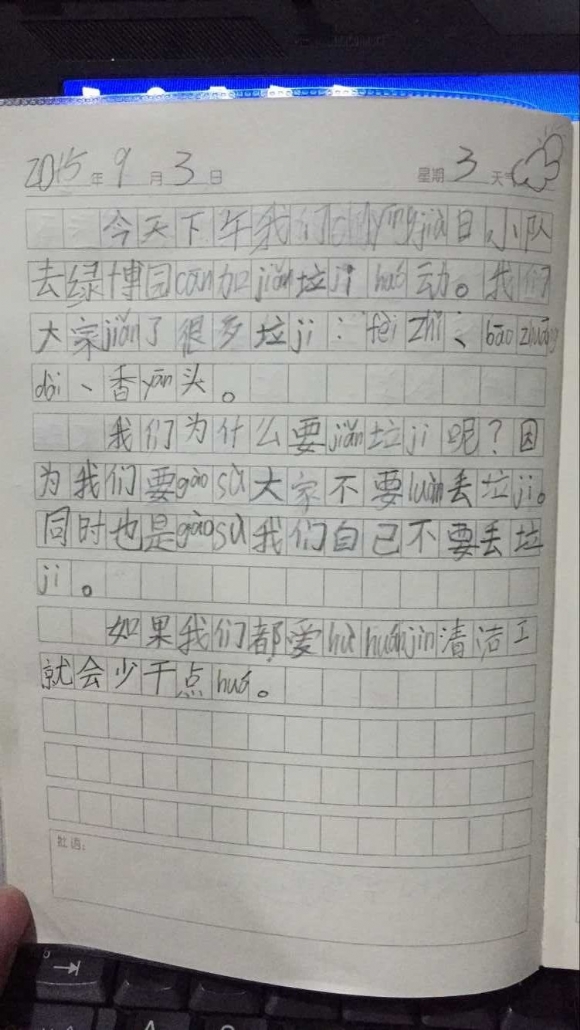 2015年9月3日 星期3天气
今天下午我们 yīngjiā日小队
去绿博园cān加jiǎn垃jī huó动。我们
大家jiǎn了很多垃ji：fèi zhǐ、bāo zhuāng
dài、香yān头。
我们为什么要jiǎn垃ji呢？因
为我们要gào sù大家不要luàn丢垃ji。
同时也是gào sù我们自己不要丢垃
ji。
如果我们都爱hù huánjìn清洁工
就会少干点huó。
批语：